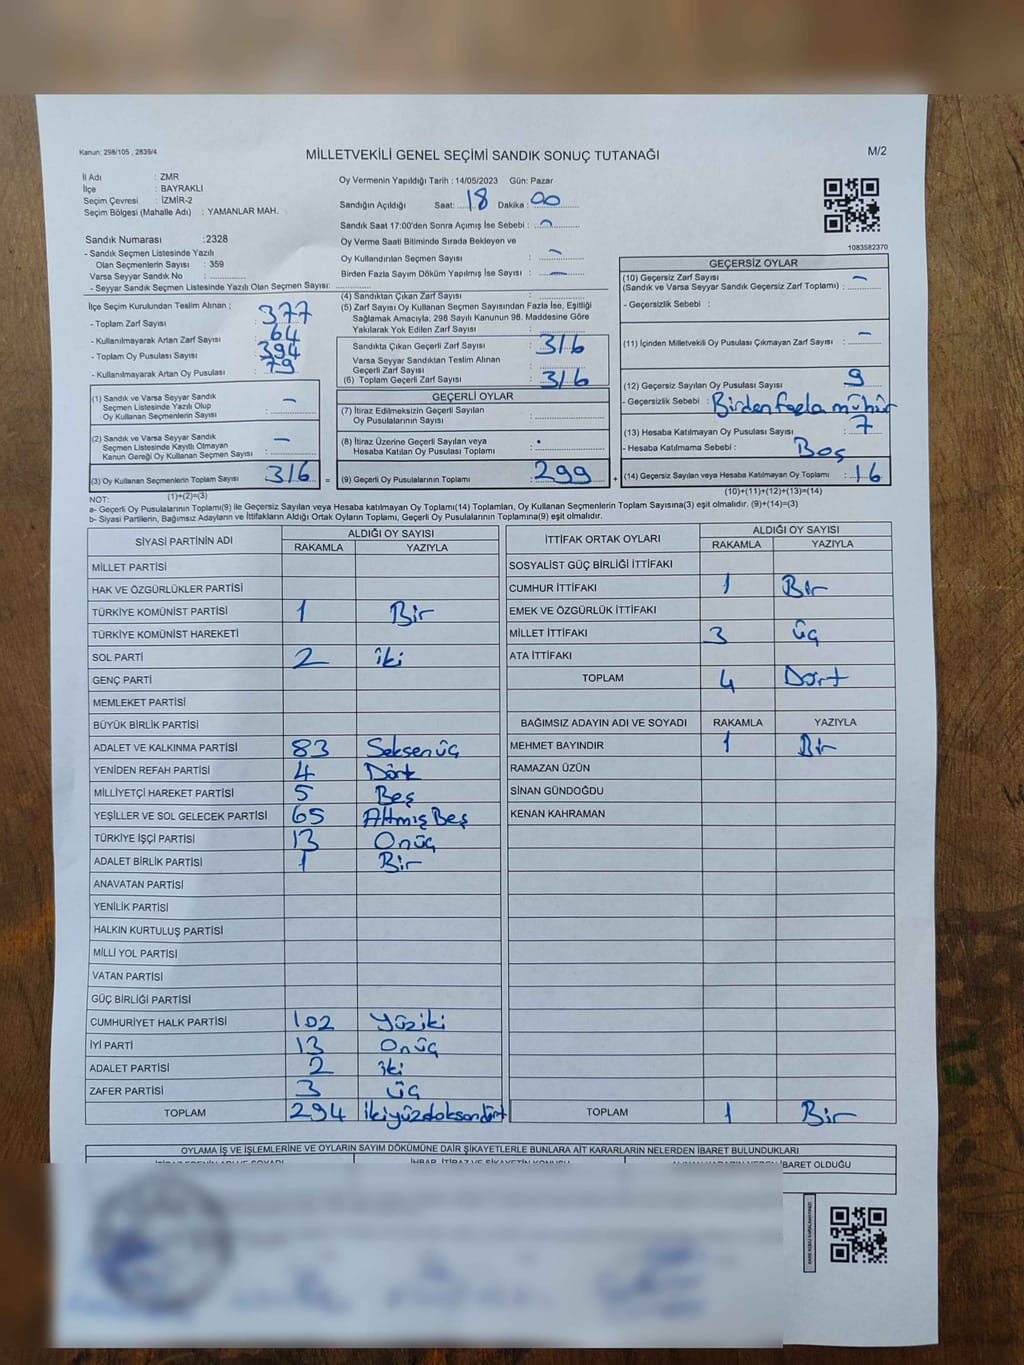 Kanun; 298/105 , 2839/4
MİLLETVEKİLİ GENEL SEÇİMİ SANDIK SONUÇ TUTANAĞI
M/2
İl Adı : ZMR
İlçe : BAYRAKLI
Seçim Çevresi : İZMİR-2
Seçim Bölgesi (Mahalle Adı) : YAMANLAR MAH.
Oy Vermenin Yapıldığı Tarih : 14/05/2023 Gün: Pazar
Sandığın Açıldığı Saat: 18 Dakika : 00
Sandık Saat 17:00'den Sonra Açımış İse Sebebi : –
Oy Verme Saati Bitiminde Sırada Bekleyen ve
Oy Kullandırılan Seçmen Sayısı : –
Birden Fazla Sayım Döküm Yapılmış İse Sayısı : –
1083582370
Sandık Numarası :2328
- Sandık Seçmen Listesinde Yazılı
Olan Seçmenlerin Sayısı : 359
Varsa Seyyar Sandık No :
- Seyyar Sandık Seçmen Listesinde Yazılı Olan Seçmen Sayısı:
İlçe Seçim Kurulundan Teslim Alınan ;
- Toplam Zarf Sayısı : 377
- Kullanılmayarak Artan Zarf Sayısı : 64
- Toplam Oy Pusulası Sayısı : 394
- Kullanılmayarak Artan Oy Pusulası : 79
(1) Sandık ve Varsa Seyyar Sandık
Seçmen Listesinde Yazılı Olup
Oy Kullanan Seçmenlerin Sayısı : –
(2) Sandık ve Varsa Seyyar Sandık
Seçmen Listesinde Kayıtlı Olmayan
Kanun Gereği Oy Kullanan Seçmen Sayısı : –
(3) Oy Kullanan Seçmenlerin Toplam Sayısı : 316 =
(4) Sandıktan Çıkan Zarf Sayısı :
(5) Zarf Sayısı Oy Kullanan Seçmen Sayısından Fazla İse, Eşitliği
Sağlamak Amacıyla; 298 Sayılı Kanunun 98. Maddesine Göre
Yakılarak Yok Edilen Zarf Sayısı :
Sandıkta Çıkan Geçerli Zarf Sayısı : 316
Varsa Seyyar Sandıktan Teslim Alınan
Geçerli Zarf Sayısı :
(6) Toplam Geçerli Zarf Sayısı : 316
GEÇERLİ OYLAR
(7) İtiraz Edilmeksizin Geçerli Sayılan
Oy Pusulalarının Sayısı :
(8) İtiraz Üzerine Geçerli Sayılan veya
Hesaba Katılan Oy Pusulası Toplamı :
(9) Geçerli Oy Pusulalarının Toplamı : 299 +
GEÇERSİZ OYLAR
(10) Geçersiz Zarf Sayısı
(Sandık ve Varsa Seyyar Sandık Geçersiz Zarf Toplamı) : –
- Geçersizlik Sebebi :
(11) İçinden Milletvekili Oy Pusulası Çıkmayan Zarf Sayısı : –
(12) Geçersiz Sayılan Oy Pusulası Sayısı : 9
- Geçersizlik Sebebi : Birden fazla mühür
(13) Hesaba Katılmayan Oy Pusulası Sayısı : 7
- Hesaba Katılmama Sebebi : Boş
(14) Geçersiz Sayılan veya Hesaba Katılmayan Oy Toplamı : 16
NOT: (1)+(2)=(3)
(10)+(11)+(12)+(13)=(14)
a- Geçerli Oy Pusulalarının Toplamı(9) ile Geçersiz Sayılan veya Hesaba katılmayan Oy Toplamı(14) Toplamları, Oy Kullanan Seçmenlerin Toplam Sayısına(3) eşit olmalıdır. (9)+(14)=(3)
b- Siyasi Partilerin, Bağımsız Adayların ve İttifakların Aldığı Ortak Oyların Toplamı, Geçerli Oy Pusulalarının Toplamına(9) eşit olmalıdır.
SİYASİ PARTİNİN ADI ALDIĞI OY SAYISI
RAKAMLA YAZIYLA
MİLLET PARTİSİ
HAK VE ÖZGÜRLÜKLER PARTİSİ
TÜRKİYE KOMÜNİST PARTİSİ 1 Bir
TÜRKİYE KOMÜNİST HAREKETİ
SOL PARTİ 2 iki
GENÇ PARTİ
MEMLEKET PARTİSİ
BÜYÜK BİRLİK PARTİSİ
ADALET VE KALKINMA PARTİSİ 83 Seksenüç
YENİDEN REFAH PARTİSİ 4 Dört
MİLLİYETÇİ HAREKET PARTİSİ 5 Beş
YEŞİLLER VE SOL GELECEK PARTİSİ 65 AltmışBeş
TÜRKİYE İŞÇİ PARTİSİ 13 Onüç
ADALET BİRLİK PARTİSİ 1 Bir
ANAVATAN PARTİSİ
YENİLİK PARTİSİ
HALKIN KURTULUŞ PARTİSİ
MİLLİ YOL PARTİSİ
VATAN PARTİSİ
GÜÇ BİRLİĞİ PARTİSİ
CUMHURİYET HALK PARTİSİ 102 Yüziki
İYİ PARTİ 13 Onüç
ADALET PARTİSİ 2 iki
ZAFER PARTİSİ 3 üç
TOPLAM 294 İkiyüzdoksandört
İTTİFAK ORTAK OYLARI ALDIĞI OY SAYISI
RAKAMLA YAZIYLA
SOSYALİST GÜÇ BİRLİĞİ İTTİFAKI
CUMHUR İTTİFAKI 1 Bir
EMEK VE ÖZGÜRLÜK İTTİFAKI
MİLLET İTTİFAKI 3 üç
ATA İTTİFAKI
TOPLAM 4 Dört
BAĞIMSIZ ADAYIN ADI VE SOYADI RAKAMLA YAZIYLA
MEHMET BAYINDIR 1 Bir
RAMAZAN ÜZÜN
SİNAN GÜNDOĞDU
KENAN KAHRAMAN
TOPLAM 1 Bir
OYLAMA İŞ VE İŞLEMLERİNE VE OYLARIN SAYIM DÖKÜMÜNE DAİR ŞİKAYETLERLE BUNLARA AİT KARARLARIN NELERDEN İBARET BULUNDUKLARI
İHBAR, İTİRAZ VE ŞİKAYETİN KONUSU
İBARET OLDUĞU